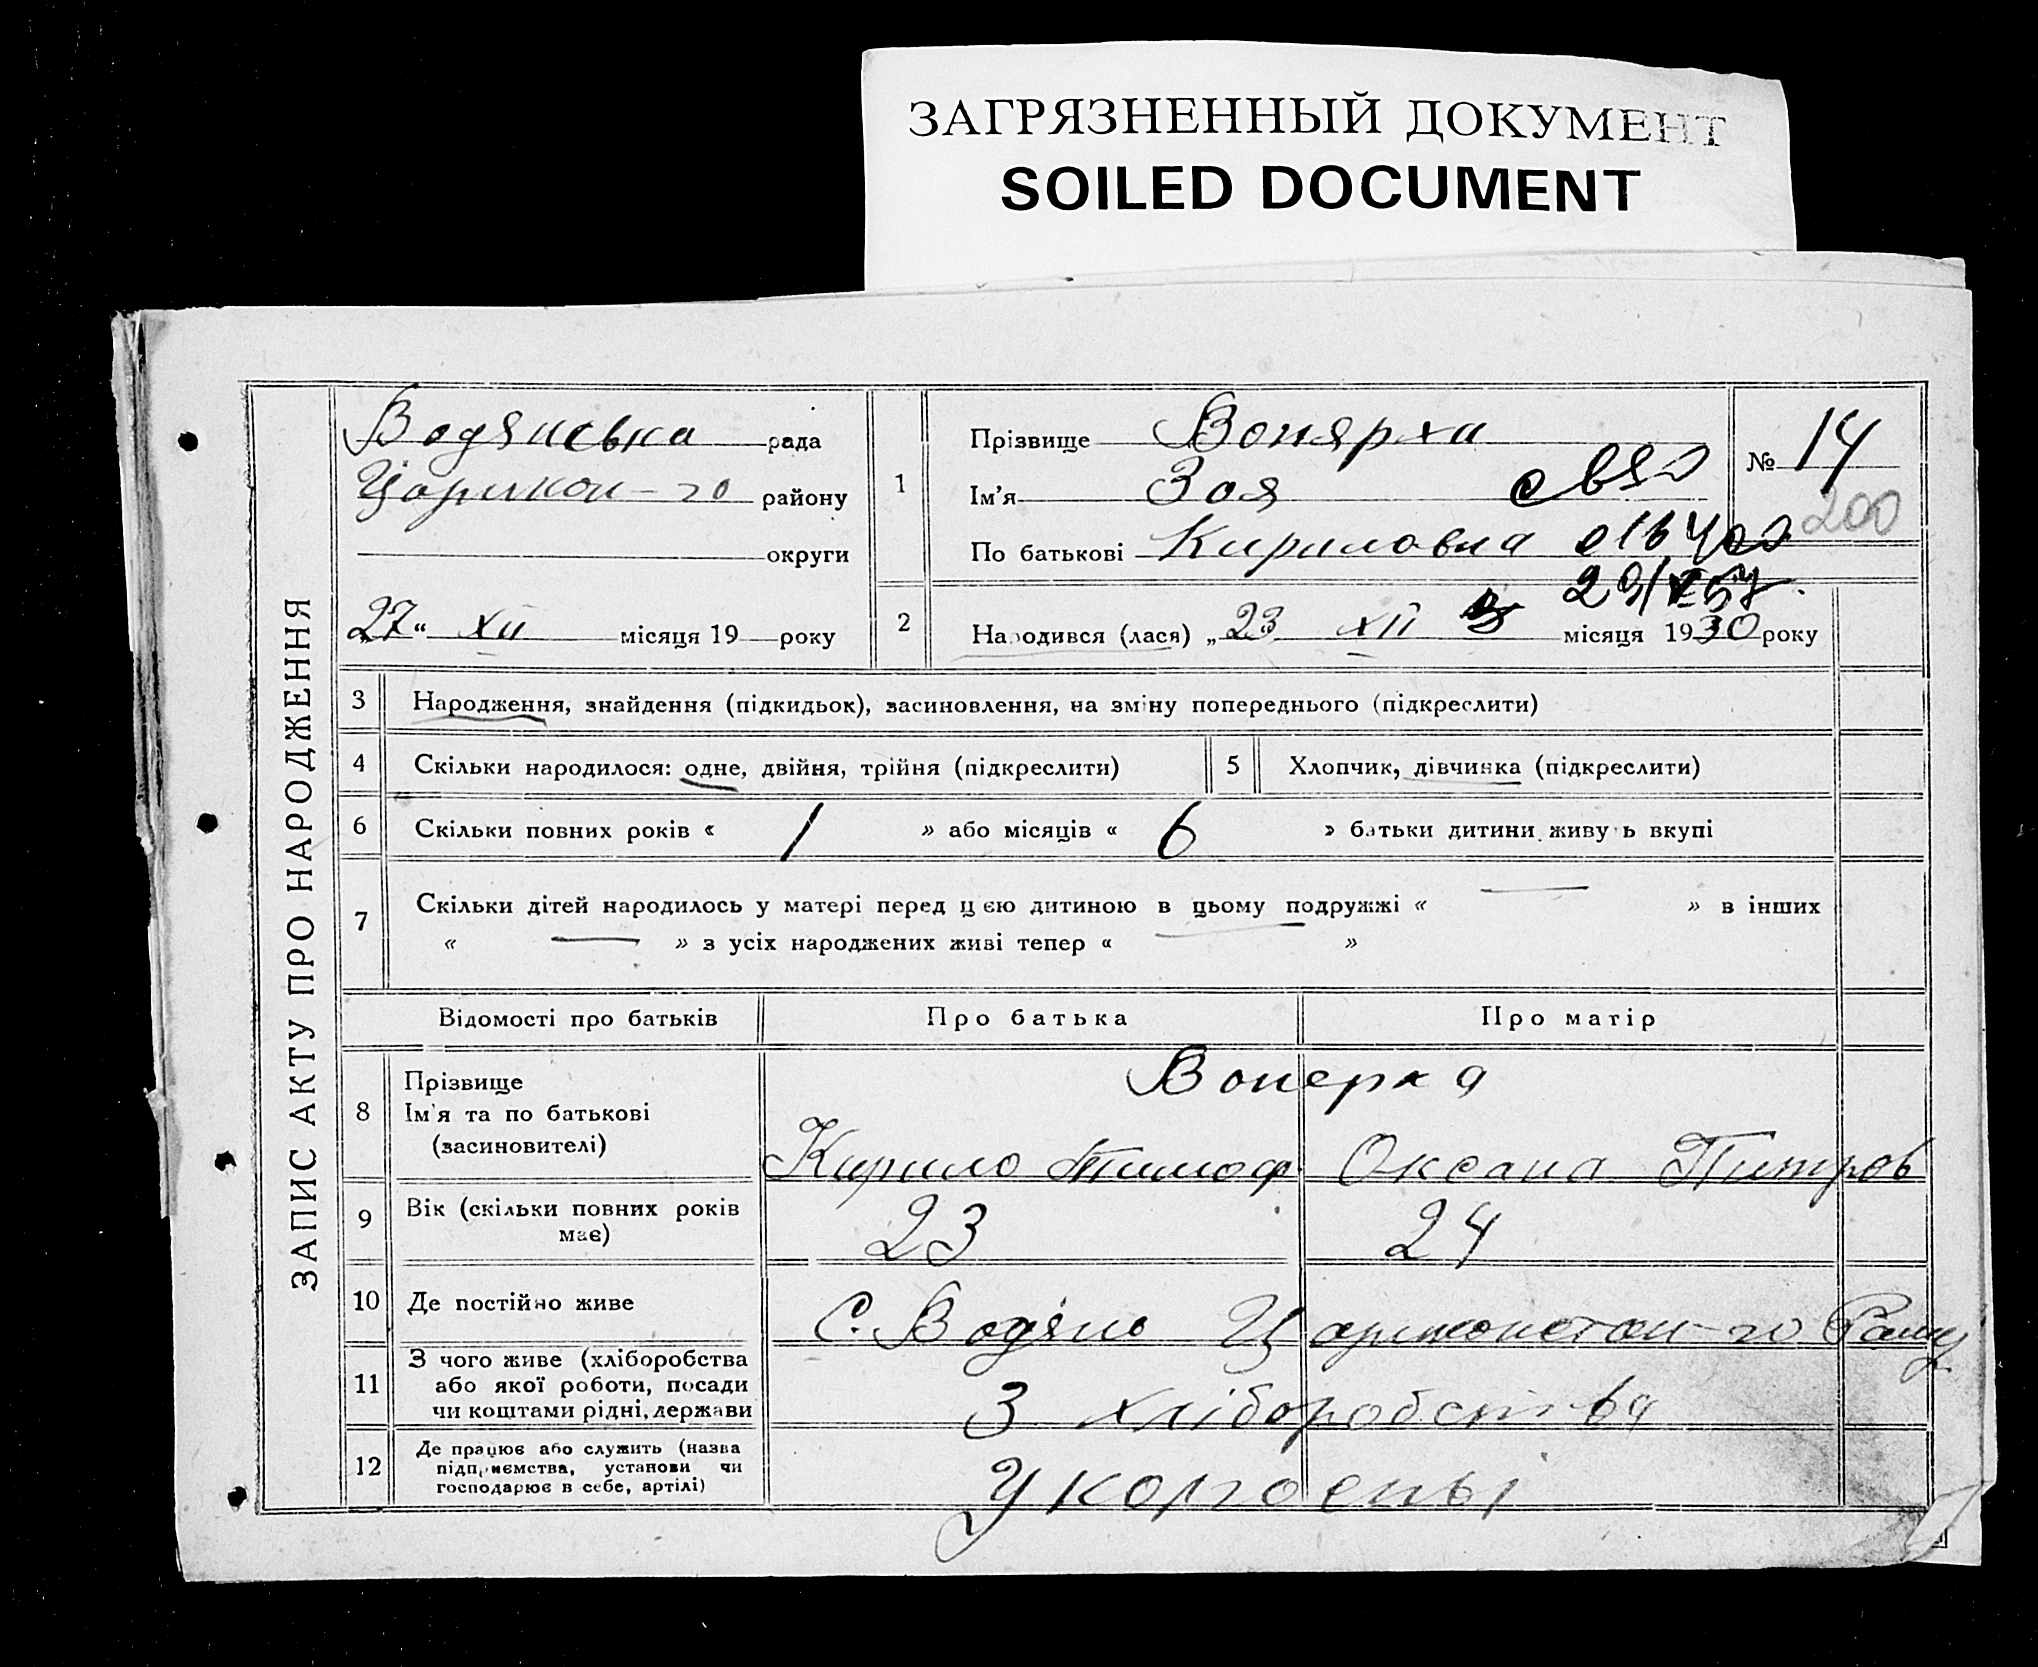 ЗАГРЯЗНЕННЫЙ ДОКУМЕНТ
SOILED DOCUMENT
ЗАПИС АКТУ ПРО НАРОДЖЕННЯ
Водянська рада
району
округи
27 " XII місяця 19 року
1
Прізвище Вонярха
Ім'я Зоя
По батькові Кириловна
№ 14
200
2
Народився (лася) „ 23 XII місяця 1930 року
3 Народження, знайдення (підкидьок), засиновлення, на зміну попереднього (підкреслити)
4 Скільки народилося: одне, двійня, трійня (підкреслити)
5 Хлопчик, дівчинка (підкреслити)
6 Скільки повних років « 1 » або місяців « 6 » батьки дитини живуть вкупі
7 Скільки дітей народилось у матері перед цією дитиною в цьому подружжі « — » в інших
« — » з усіх народжених живі тепер « — »
Відомості про батьків Про батька Про матір
8 Прізвище
Ім'я та по батькові
(засиновителі)
Вонерха
Кирило Тимоф Оксана Питров
9 Вік (скільки повних років
має)
23 24
10 Де постійно живе
С. Водяно
11 З чого живе (хліборобства
або якої роботи, посади
чи коштами рідні, держави
З хліборобства
12 Де працює або служить (назва
підприємства, установи чи
господарює в себе, артілі)
У колгоспі